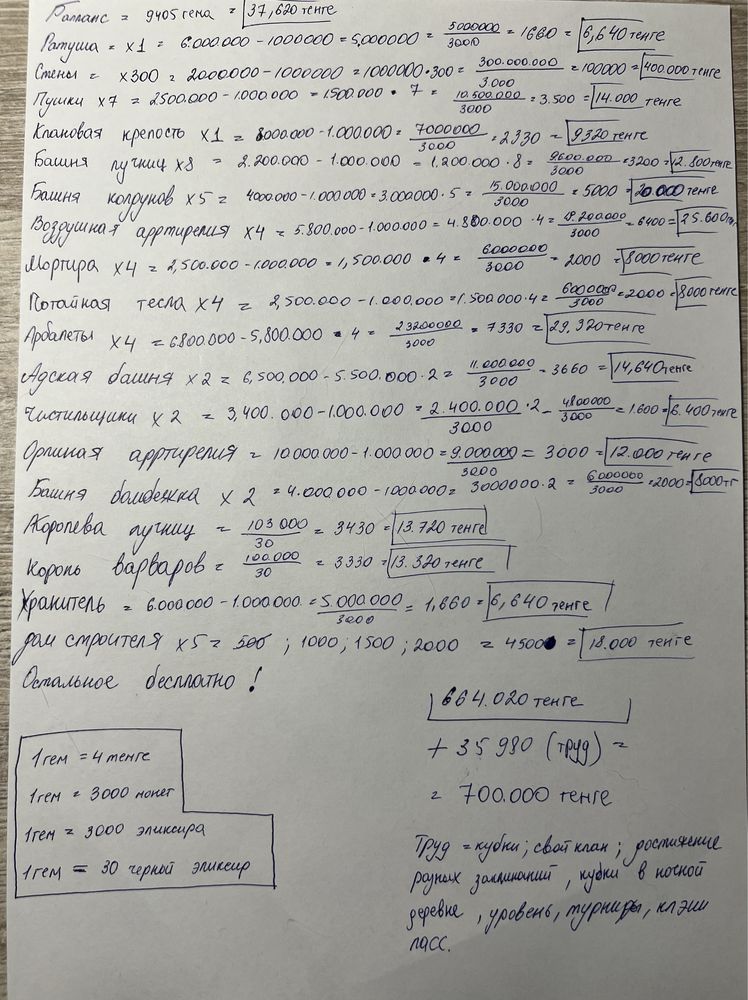 Балланс = 9405 гема = 37,620 тенге
Ратуша = х1 = 6.000.000 - 1000000 = 5,000000 = 5000000/3000 = 1660 = 6,640 тенге
Стены = х300 = 2000.000 - 1000000 = 1000000·300 = 300.000.000/3.000 = 100000 = 400.000 тенге
Пушки х7 = 2500.000 - 1.000.000 = 1.500.000 · 7 = 10.500.000/3000 = 3.500 = 14.000 тенге
Клановая крепость х1 = 8000.000 - 1.000.000 = 7000000/3000 = 2330 = 9320 тенге
Башня лучниц х8 = 2.200.000 - 1.000.000 = 1.200.000 · 8 = 9600.000/3000 = 3200 = 12.800 тенге
Башня колдунов х5 = 4000.000 - 1.000.000 = 3.000.000 · 5 = 15.000.000/3000 = 5000 = 20.000 тенге
Воздушная арртирелия х4 = 5.800.000 - 1.000.000 = 4.800.000 · 4 = 19.200.000/3000 = 6400 = 25.600
Мортира х4 = 2,500.000 - 1.000.000 = 1,500.000 · 4 = 6000000/3000 = 2000 = 8000 тенге
Потайная тесла х4 = 2,500.000 - 1.000.000 = 1.500.000 · 4 = 6000000/3000 = 2000 = 8000 тенге
Арбалеты х4 = 6800.000 - 5,800.000 · 4 = 23200000/3000 = 7330 = 29.320 тенге
Адская башня х2 = 6,500,000 - 5.500.000 · 2 = 11.000000/3000 - 3660 = 14,640 тенге
Чистильщики х2 = 3,400.000 - 1.000.000 = 2.400.000/3000 · 2 - 4800000/3000 = 1.600 = 6.400 тенге
Орлиная арртирелия = 10000.000 - 1.000.000 = 9.000.000/3000 = 3000 = 12.000 тенге
Башня бомбежка х2 = 4.000.000 - 1000000 = 3000000 · 2 = 6000000/3000 = 2000 = 8000 тг
Королева лучниц = 103000/30 = 3430 = 13.720 тенге
Король варваров = 100.000/30 = 3330 = 13.320 тенге
Хранитель = 6.000.000 - 1.000.000 = 5.000.000/3000 = 1,660 = 6,640 тенге
Дом строителя х5 = 500 ; 1000 ; 1500 ; 2000 = 4500 = 18.000 тенге
Остальное бесплатно !
664.020 тенге
+ 35 980 (труд) =
= 700.000 тенге
1 гем = 4 тенге
1 гем = 3000 монет
1 гем = 3000 эликсира
1 гем = 30 черной эликсир
Труд = кубки ; свой клан ; достижение
разных заклинаний , кубки в ночной
деревне , уровень, турниры, клэш
пасс.